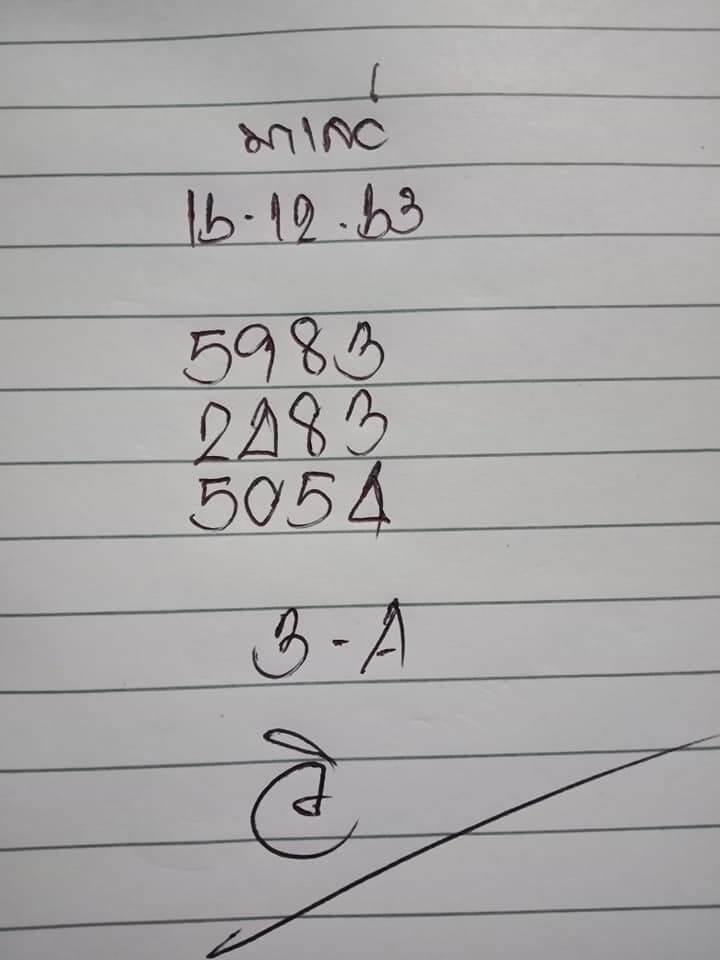 มาเลย์
16.12.63
5983
2483
5054
3-4